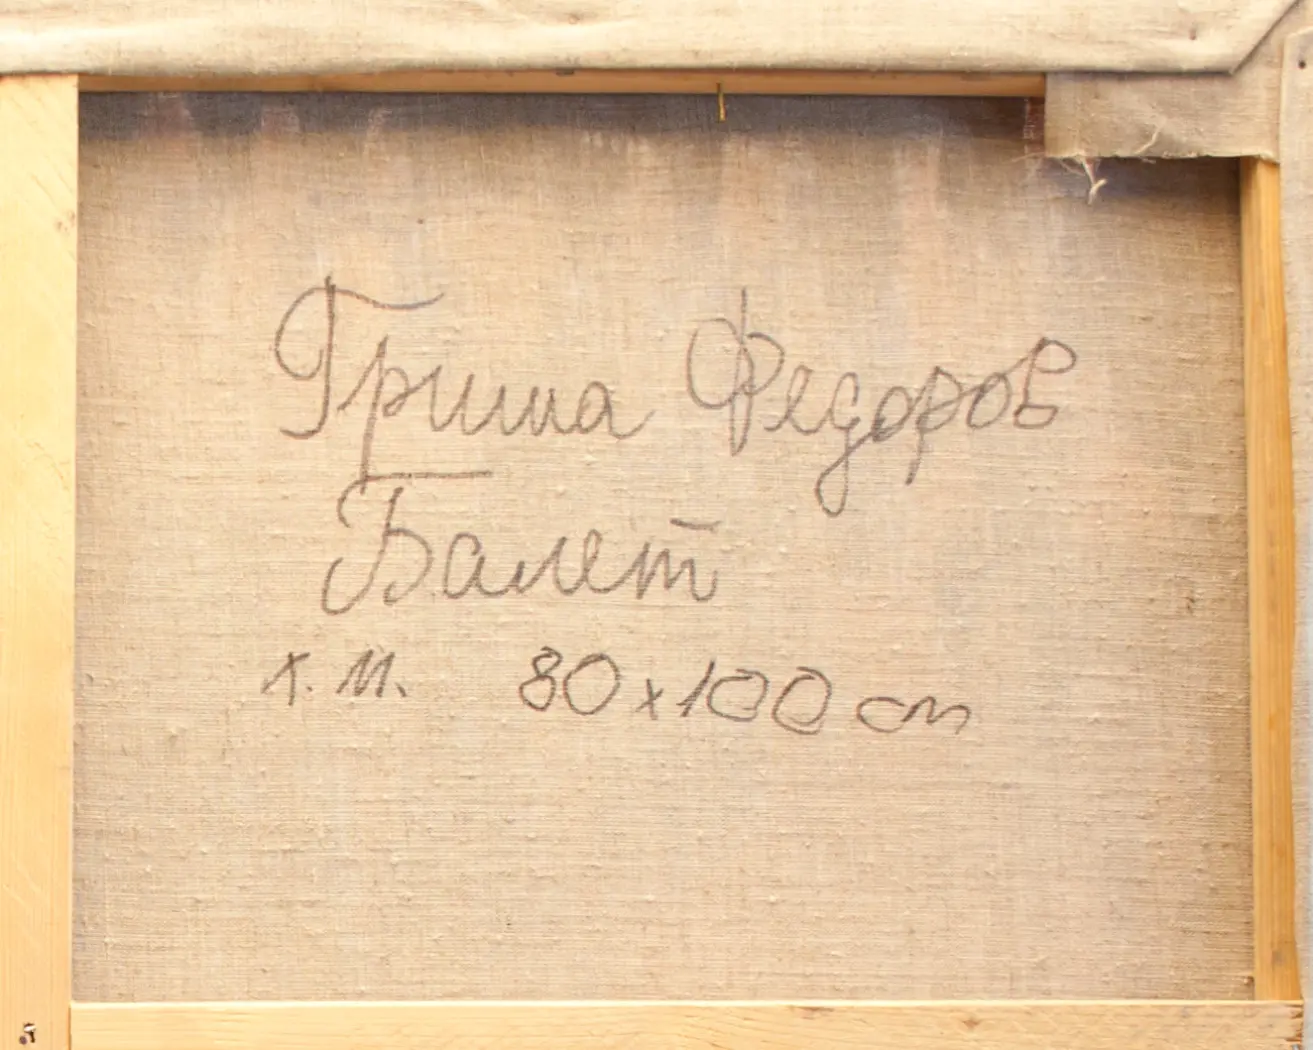 Гриша Федоров
Балет
х.м. 80х100 см